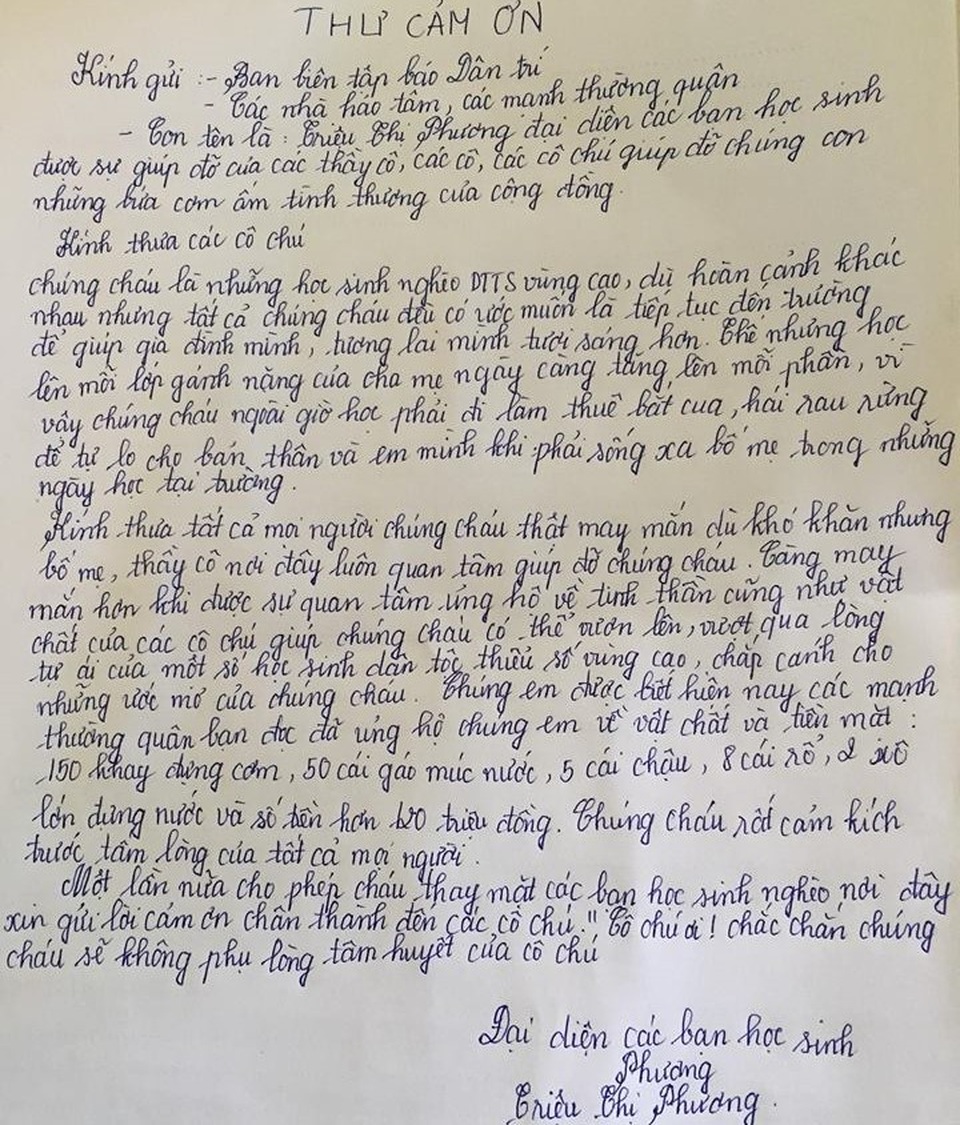 THƯ CẢM ƠN
Kính gửi :- Ban biên tập báo Dân trí
- Các nhà hảo tâm, các mạnh thường quân
- Con tên là : Triệu Thị Phương đại diện các bạn học sinh
được sự giúp đỡ của các thầy cô, các cô, các cô chú giúp đỡ chúng con
những bữa cơm ấm tình thương của cộng đồng.
Kính thưa các cô chú
chúng cháu là những học sinh nghèo DTTS vùng cao, dù hoàn cảnh khác
nhau nhưng tất cả chúng cháu đều có ước muốn là tiếp tục đến trường
để giúp gia đình mình, tương lai mình tươi sáng hơn. Thế nhưng học
lên mỗi lớp gánh nặng của cha mẹ ngày càng tăng lên mỗi phần, vì
vậy chúng cháu ngoài giờ học phải đi làm thuê bắt cua, hái rau rừng
để tự lo cho bản thân và em mình khi phải sống xa bố mẹ trong những
ngày học tại trường.
Kính thưa tất cả mọi người chúng cháu thật may mắn dù khó khăn nhưng
bố mẹ, thầy cô nơi đây luôn quan tâm giúp đỡ chúng cháu. Càng may
mắn hơn khi được sự quan tâm ủng hộ về tinh thần cũng như vật
chất của các cô chú giúp chúng cháu có thể vươn lên, vượt qua lòng
tự ái của một số học sinh dân tộc thiểu số vùng cao, chắp cánh cho
những ước mơ của chúng cháu. Chúng em được biết hiện nay các mạnh
thường quân bạn đọc đã ủng hộ chúng em về vật chất và tiền mặt :
150 khay đựng cơm, 50 cái gáo múc nước, 5 cái chậu, 8 cái rổ, 2 xô
lớn đựng nước và số tiền hơn 120 triệu đồng. Chúng cháu rất cảm kích
trước tấm lòng của tất cả mọi người.
Một lần nữa cho phép cháu thay mặt các bạn học sinh nghèo nơi đây
xin gửi lời cảm ơn chân thành đến các cô chú." Cô chú ơi! chắc chắn chúng
cháu sẽ không phụ lòng tâm huyết của cô chú
Đại diện các bạn học sinh
Phương
Triệu Thị Phương.